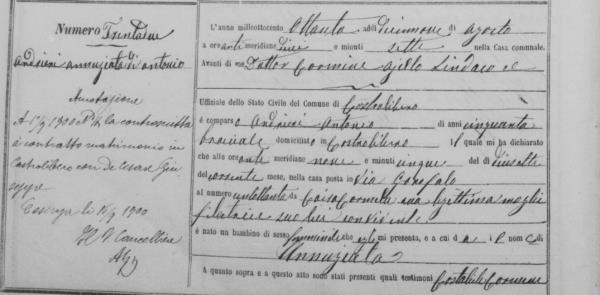 Numero Trentadue
Andrieri Annuziata di Antonio
Annotazione
A 1900 la controscritta
à contratto matrimonio in
Castrolibero con De Cesare Giu-
seppe
Cosenza li 1900
Il Cancelliere
L'anno milleottocento Ottanta addì diciannove di agosto
a ore anti meridiane dieci e minuti sette nella Casa comunale.
Avanti di me Dottor Carmine Ajello Sindaco e
Uffiziale dello Stato Civile del Comune di Castrolibero
è comparso Andrieri Antonio di anni cinquanta
bracciale domiciliato in Castrolibero il quale mi ha dichiarato
che alle ore anti meridiane nove e minuti cinque del dì diciotto
del corrente mese, nella casa posta in Via Garofalo
al numero ventotto da Carmela sua legittima moglie
filatrice seco lui convivente
è nato un bambino di sesso femminile che egli mi presenta, e a cui dà il nome di
Annuziata
A quanto sopra e a questo atto sono stati presenti quali testimoni Carmine